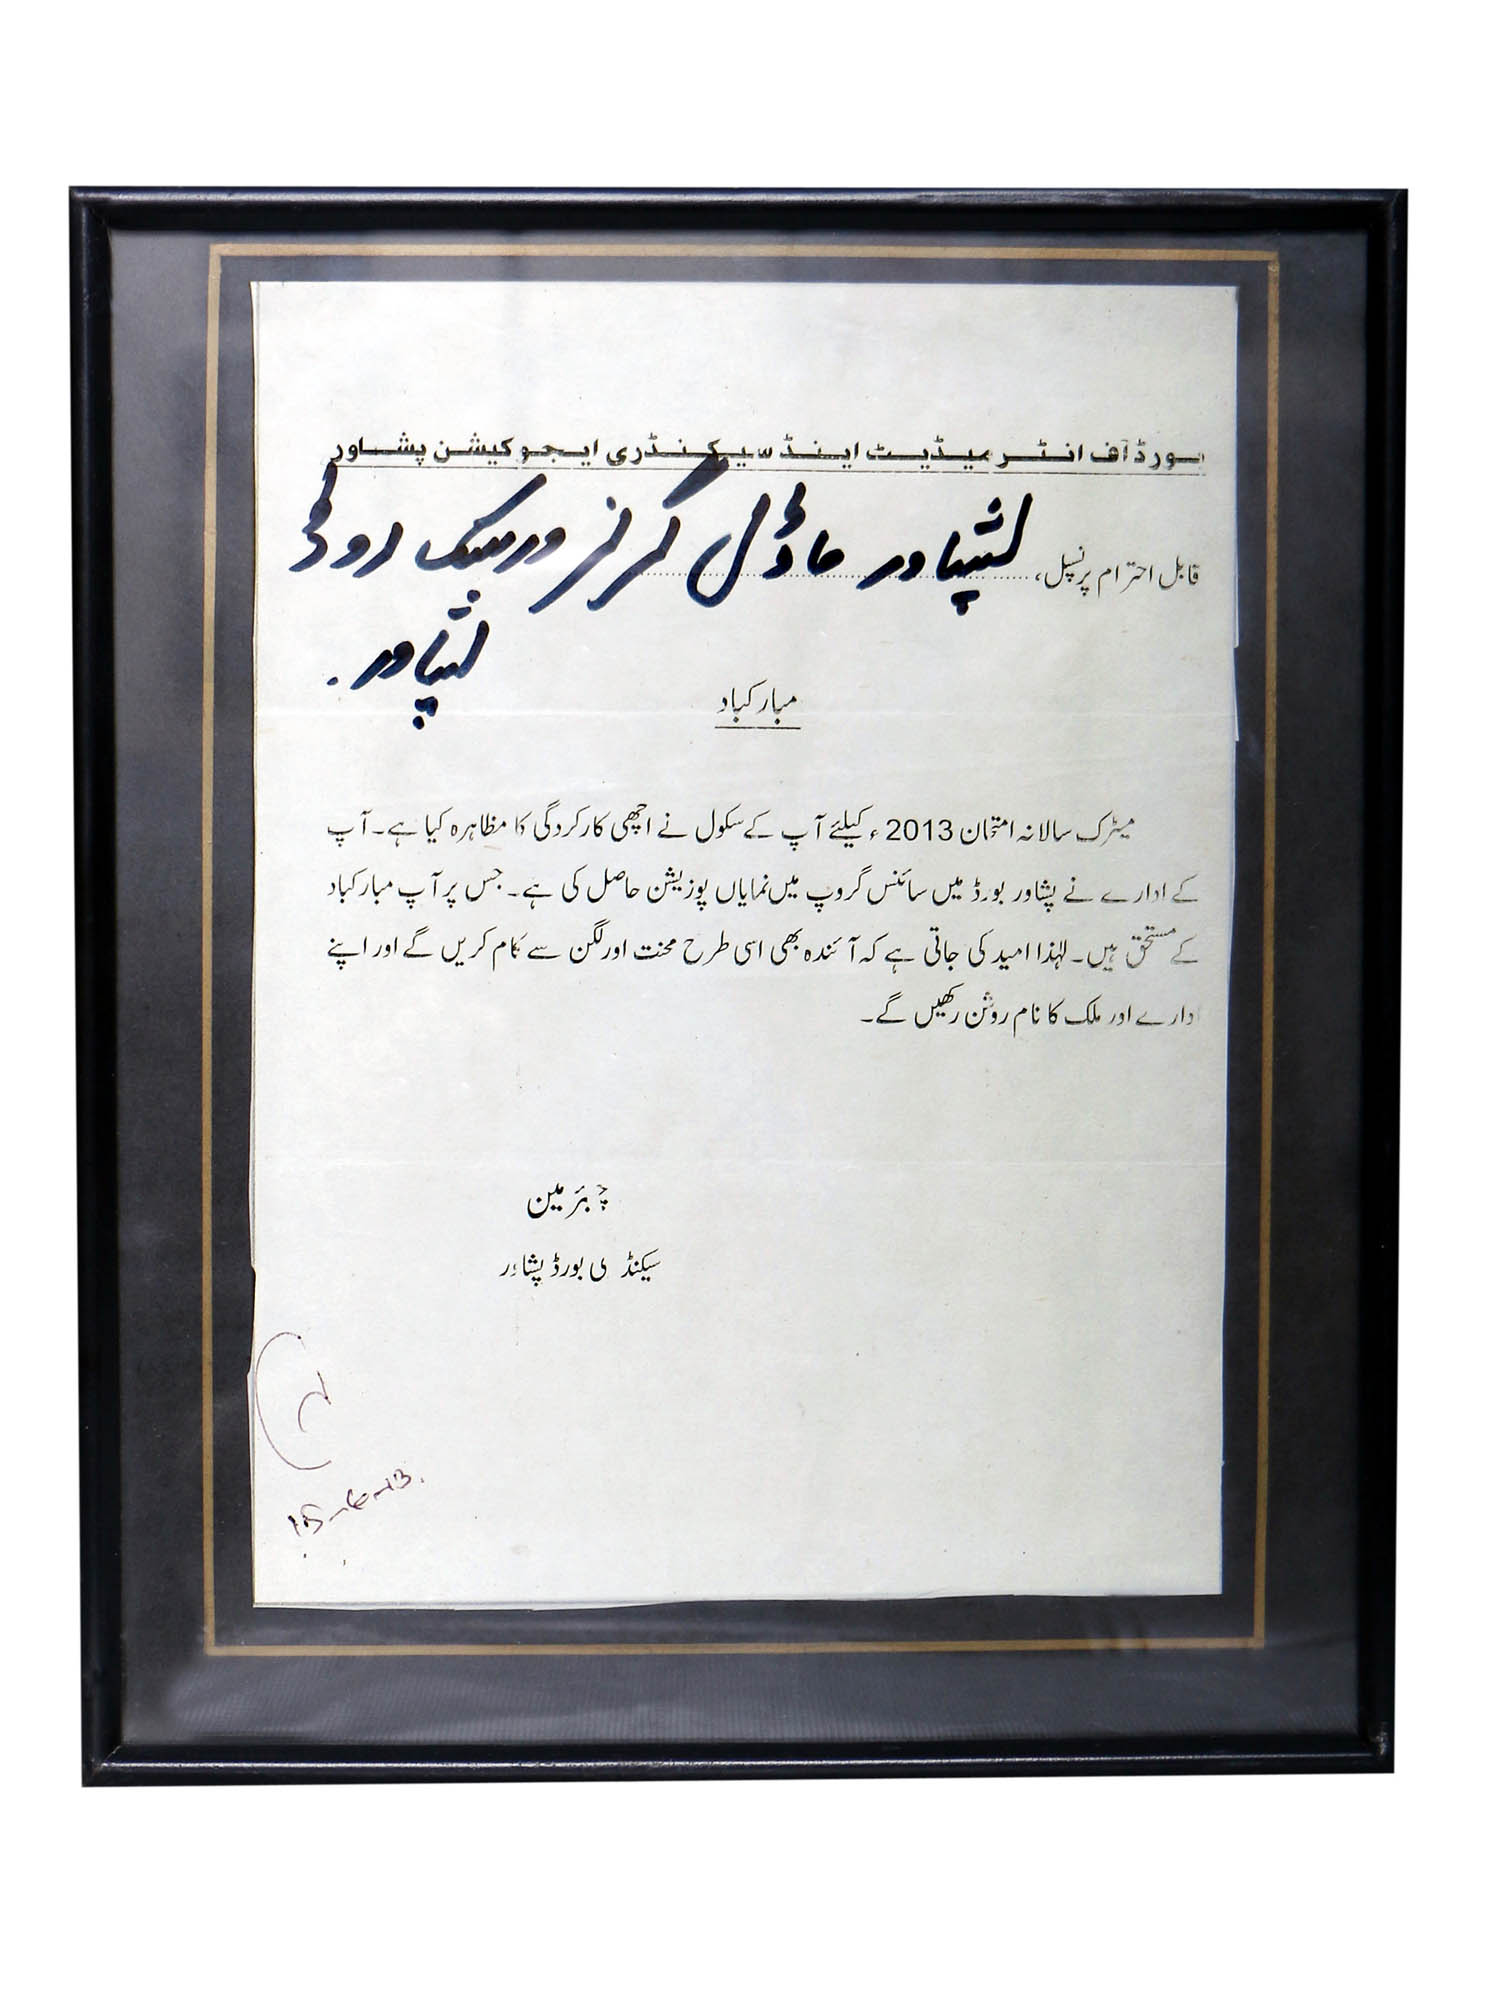 بورڈ آف انٹر میڈیٹ اینڈ سیکنڈری ایجوکیشن پشاور
قابل احترام پرنسپل، پشاور ماڈل گرلز ورسک روڈ
پشاور.
مبارکباد
میٹرک سالانہ امتحان 2013ء کیلئے آپ کے سکول نے اچھی کارکردگی کا مظاہرہ کیا ہے۔ آپ
کے ادارے نے پشاور بورڈ میں سائنس گروپ میں نمایاں پوزیشن حاصل کی ہے۔ جس پر آپ مبارکباد
کے مستحق ہیں۔ لہٰذا امید کی جاتی ہے کہ آئندہ بھی اسی طرح محنت اور لگن سے کام کریں گے اور اپنے
ادارے اور ملک کا نام روشن رکھیں گے۔
چیئرمین
سیکنڈری بورڈ پشاور